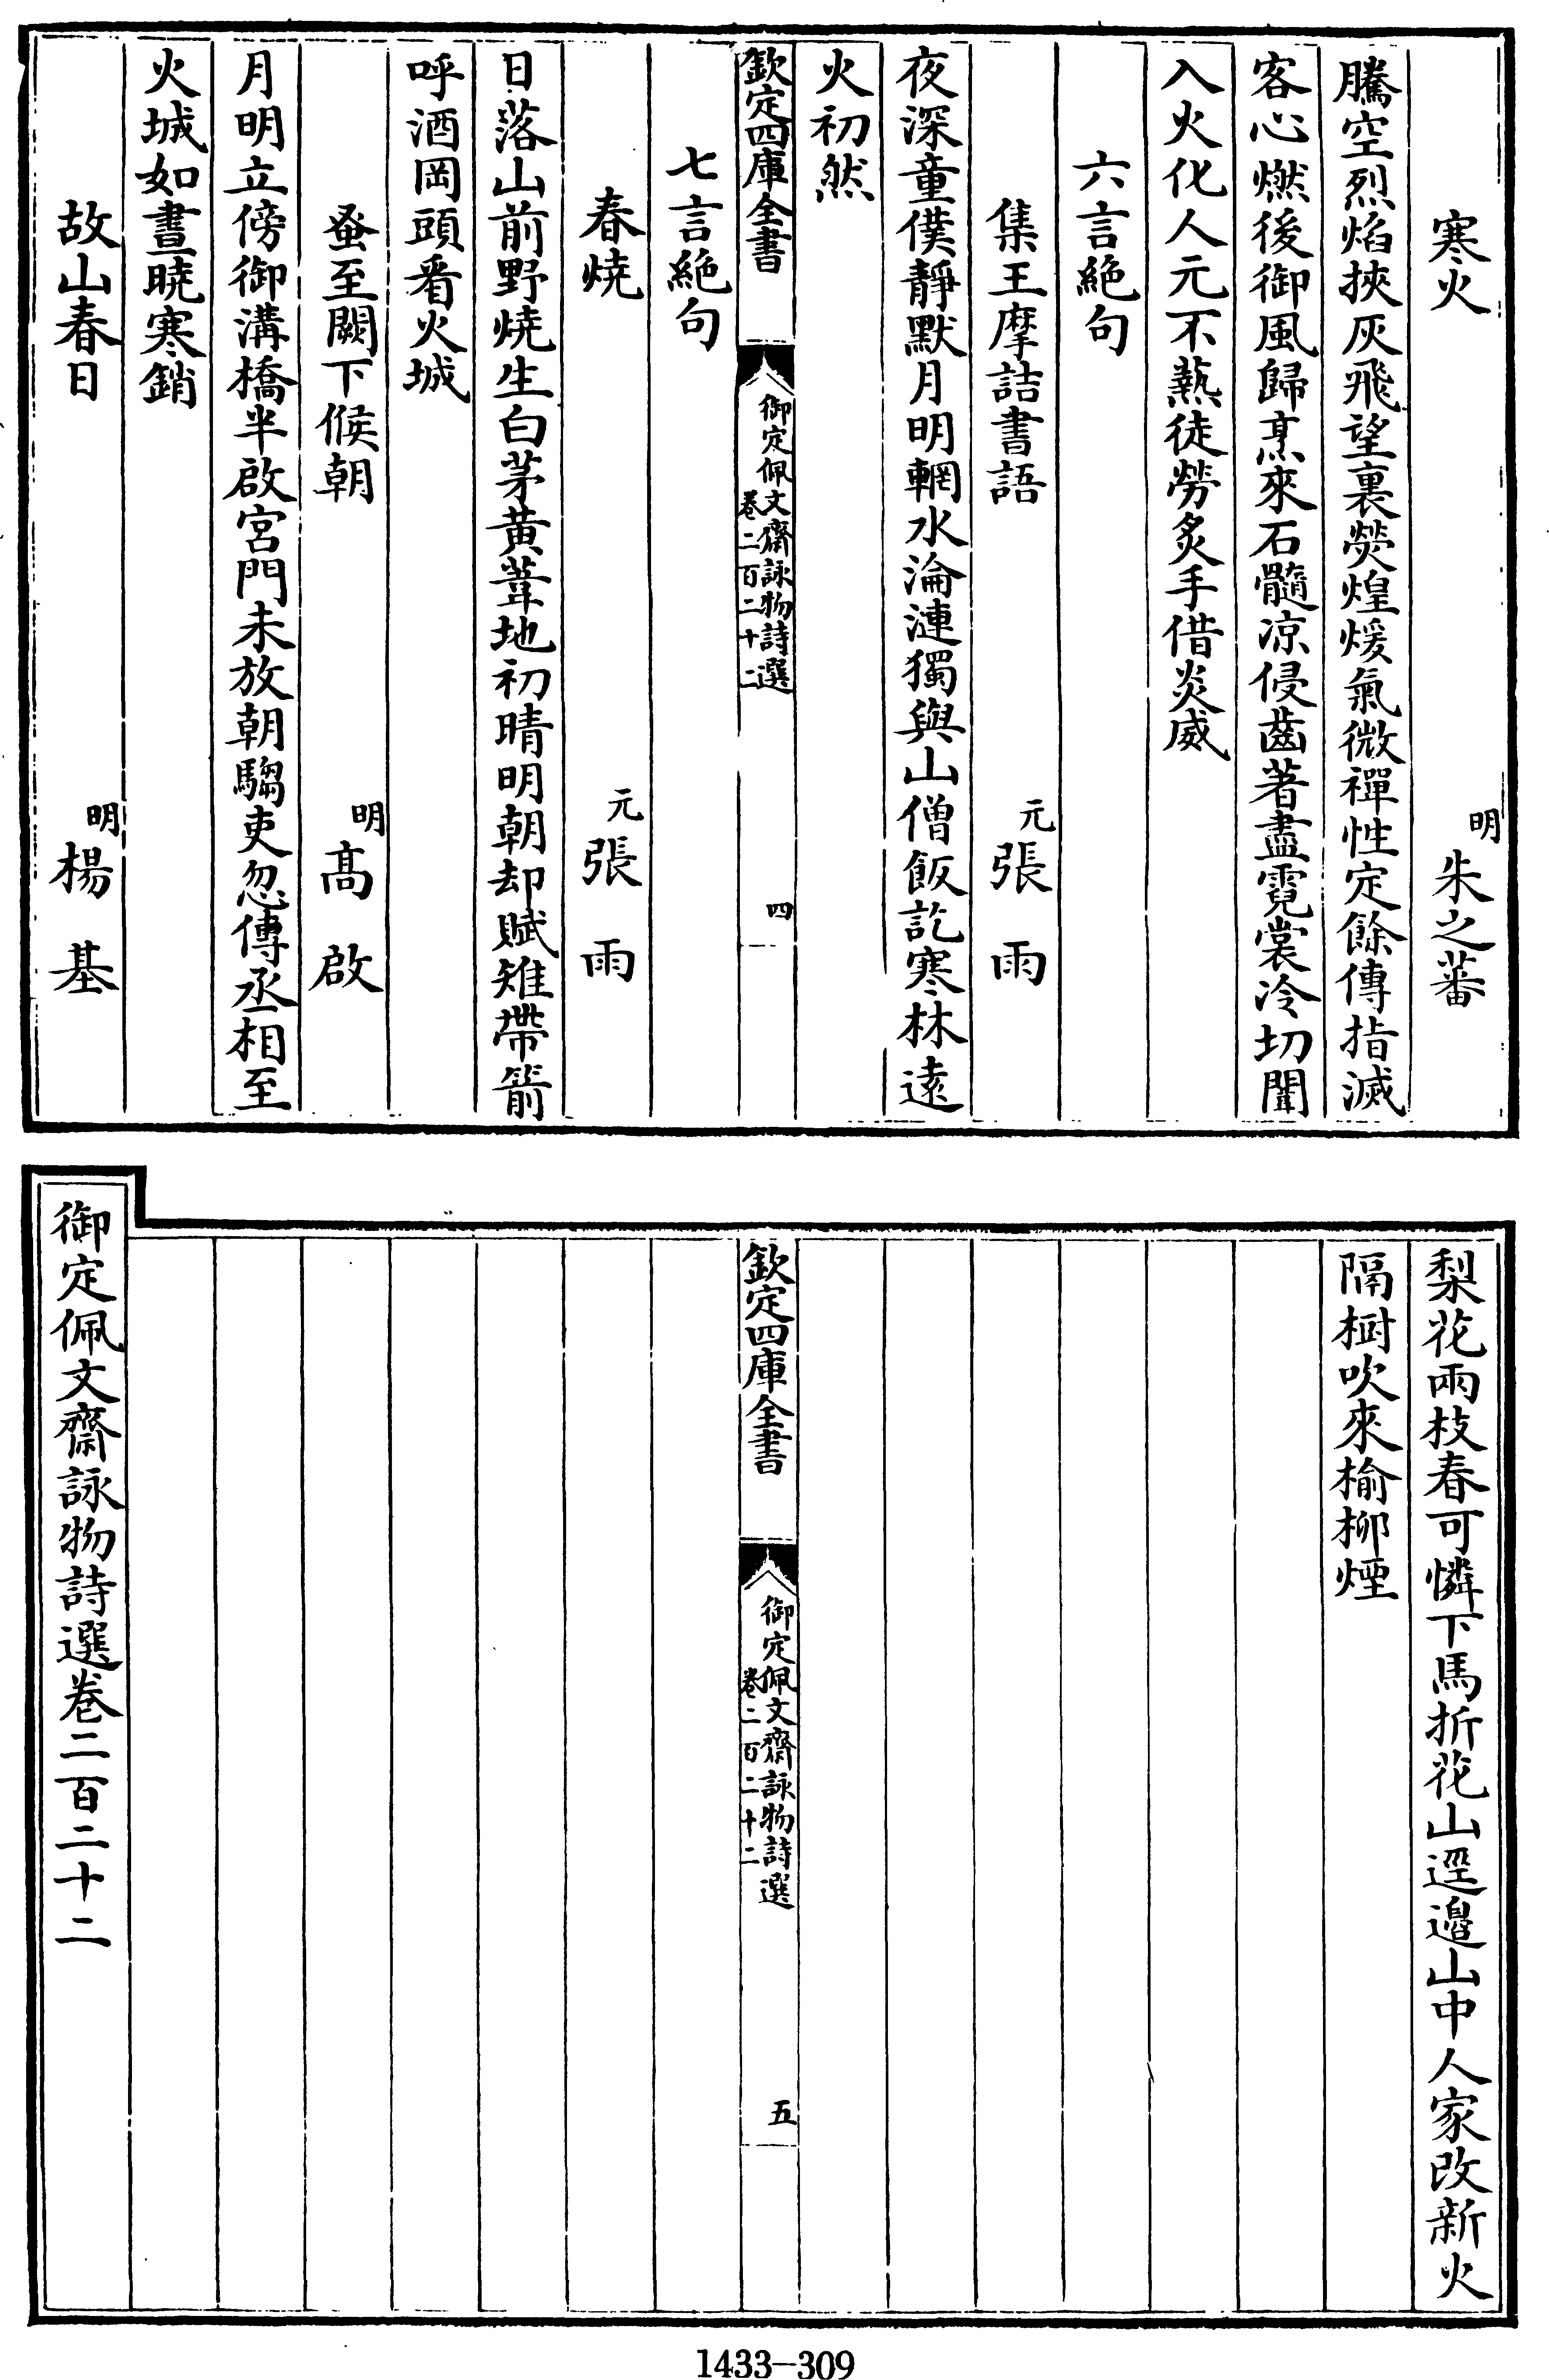 寒火　明朱之蕃
騰空烈焰挾灰飛望裏熒煌煖氣微禪性定餘傳指滅
客心燃後御風歸烹來石髓凉侵齒著盡霓裳冷切聞
入火化人元不熱徒勞炙手借炎威
六言絶句
集王摩詰書語　元張雨
夜深童僕靜默月明輞水淪漣獨與山僧飯訖寒林遠
火初然
欽定四庫全書　御定佩文齋詠物詩選　卷二百二十二　四
七言絶句
春燒　元張雨
日落山前野燒生白茅黃葦地初晴明朝却賦雉帶箭
呼酒岡頭看火城
蚤至闕下候朝　明髙啟
月明立傍御溝橋半啟宮門未放朝騶吏忽傳丞相至
火城如晝曉寒銷
故山春日　明楊基
梨花兩枝春可憐下馬折花山逕邉山中人家改新火
隔樹吹來榆柳煙
欽定四庫全書　御定佩文齋詠物詩選　卷二百二十二　五
御定佩文齋詠物詩選卷二百二十二
1433—309